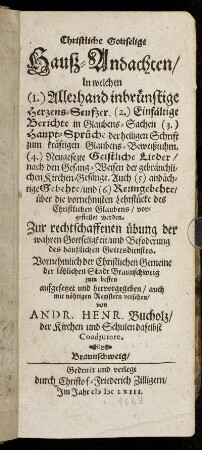 Christliche Gottselige
Hauß-Andachten/
In welchen
(1.) Allerhand inbrünstige
Hertzens-Seufzer. (2.) Einfältige
Berichte in Glaubens-Sachen (3.)
Haupt-Sprüche der heiligen Schrift
zum kräftigen Glaubens-Beweißthum.
(4.) Neugesetzte Geistliche Lieder/
nach den Gesang-Weisen der gebräuchli-
chen Kirchen-Gesänge. Auch (5) andäch-
tige Gebehte/ und (6) Reimgebehte/
über die vornehmsten Lehrstücke des
Christlichen Glaubens/ vor-
gestellet werden.
Zur rechtschaffenen übung der
wahren Gottseligkeit und Beföderung
des häußlichen Gottesdienstes.
Vornehmlich der Christlichen Gemeine
der löblichen Stadt Braunschweig
zum besten
aufgesetzet und hervorgegeben/ auch
mit nöhtigen Registern versehen/
von
ANDR. HENR. Bucholz/
der Kirchen und Schulen daselbst
Coadjutore.
Braunschweig/
Gedruckt und verlegt
durch Christof-Friederich Zilligern/
Im Jahr
LXIII.
1663